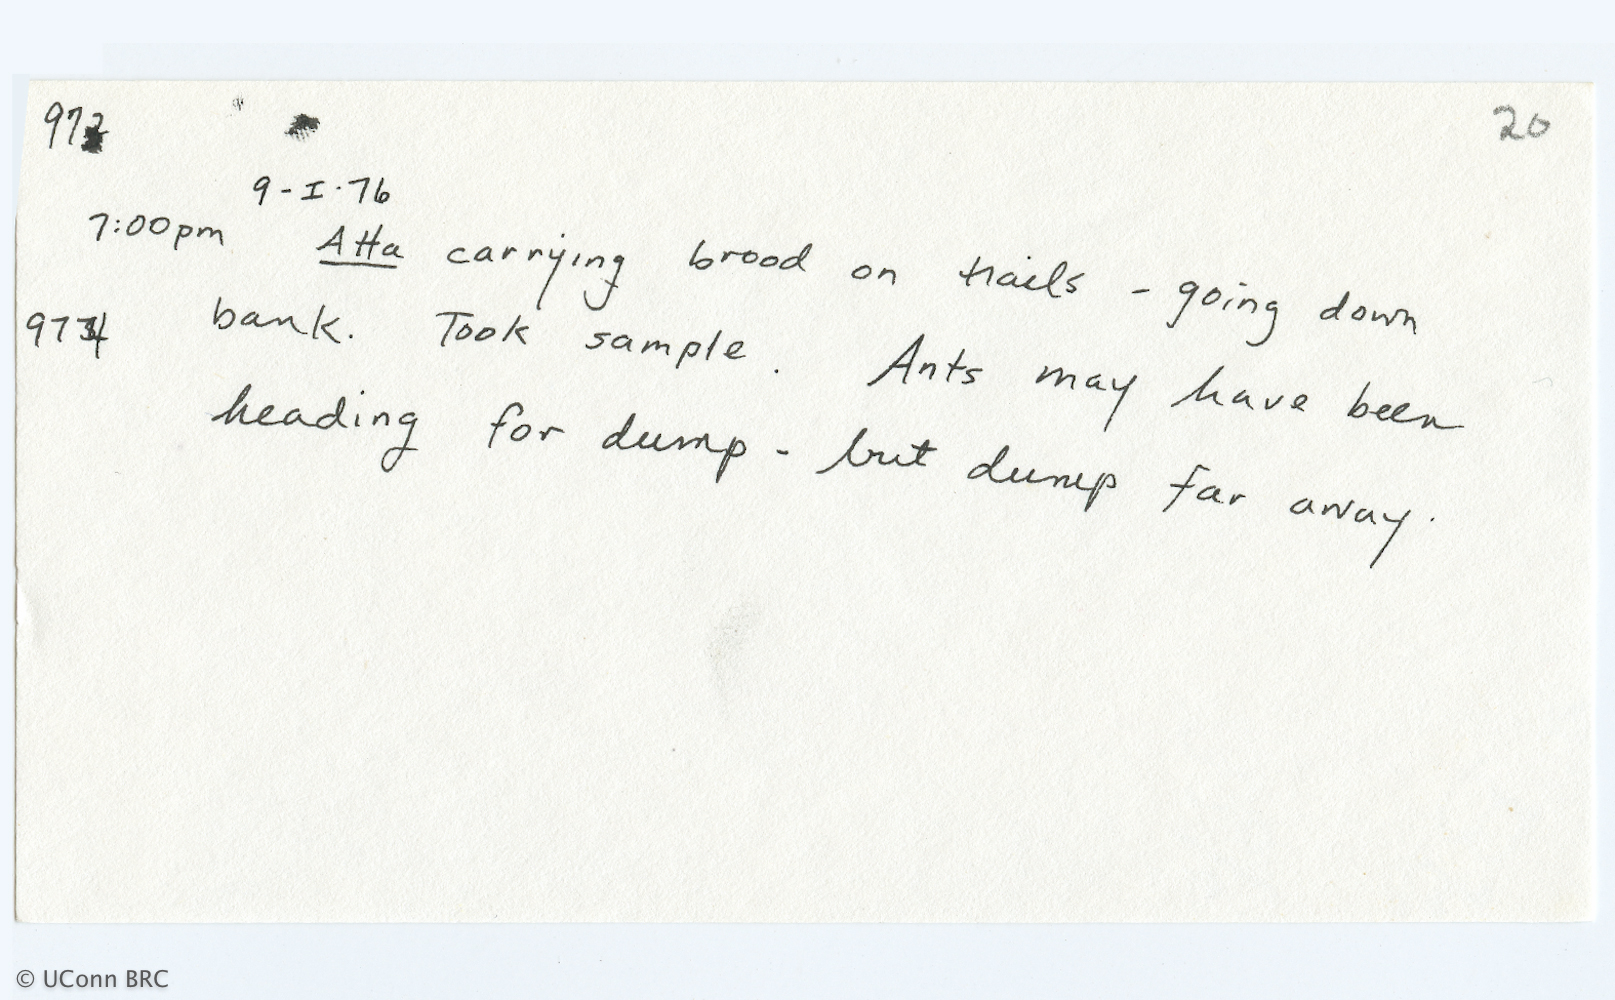 972 20
9-I-76
7:00pm Atta carrying brood on trails - going down
974 bank. Took sample. Ants may have been
heading for dump - but dump far away.
© UConn BRC